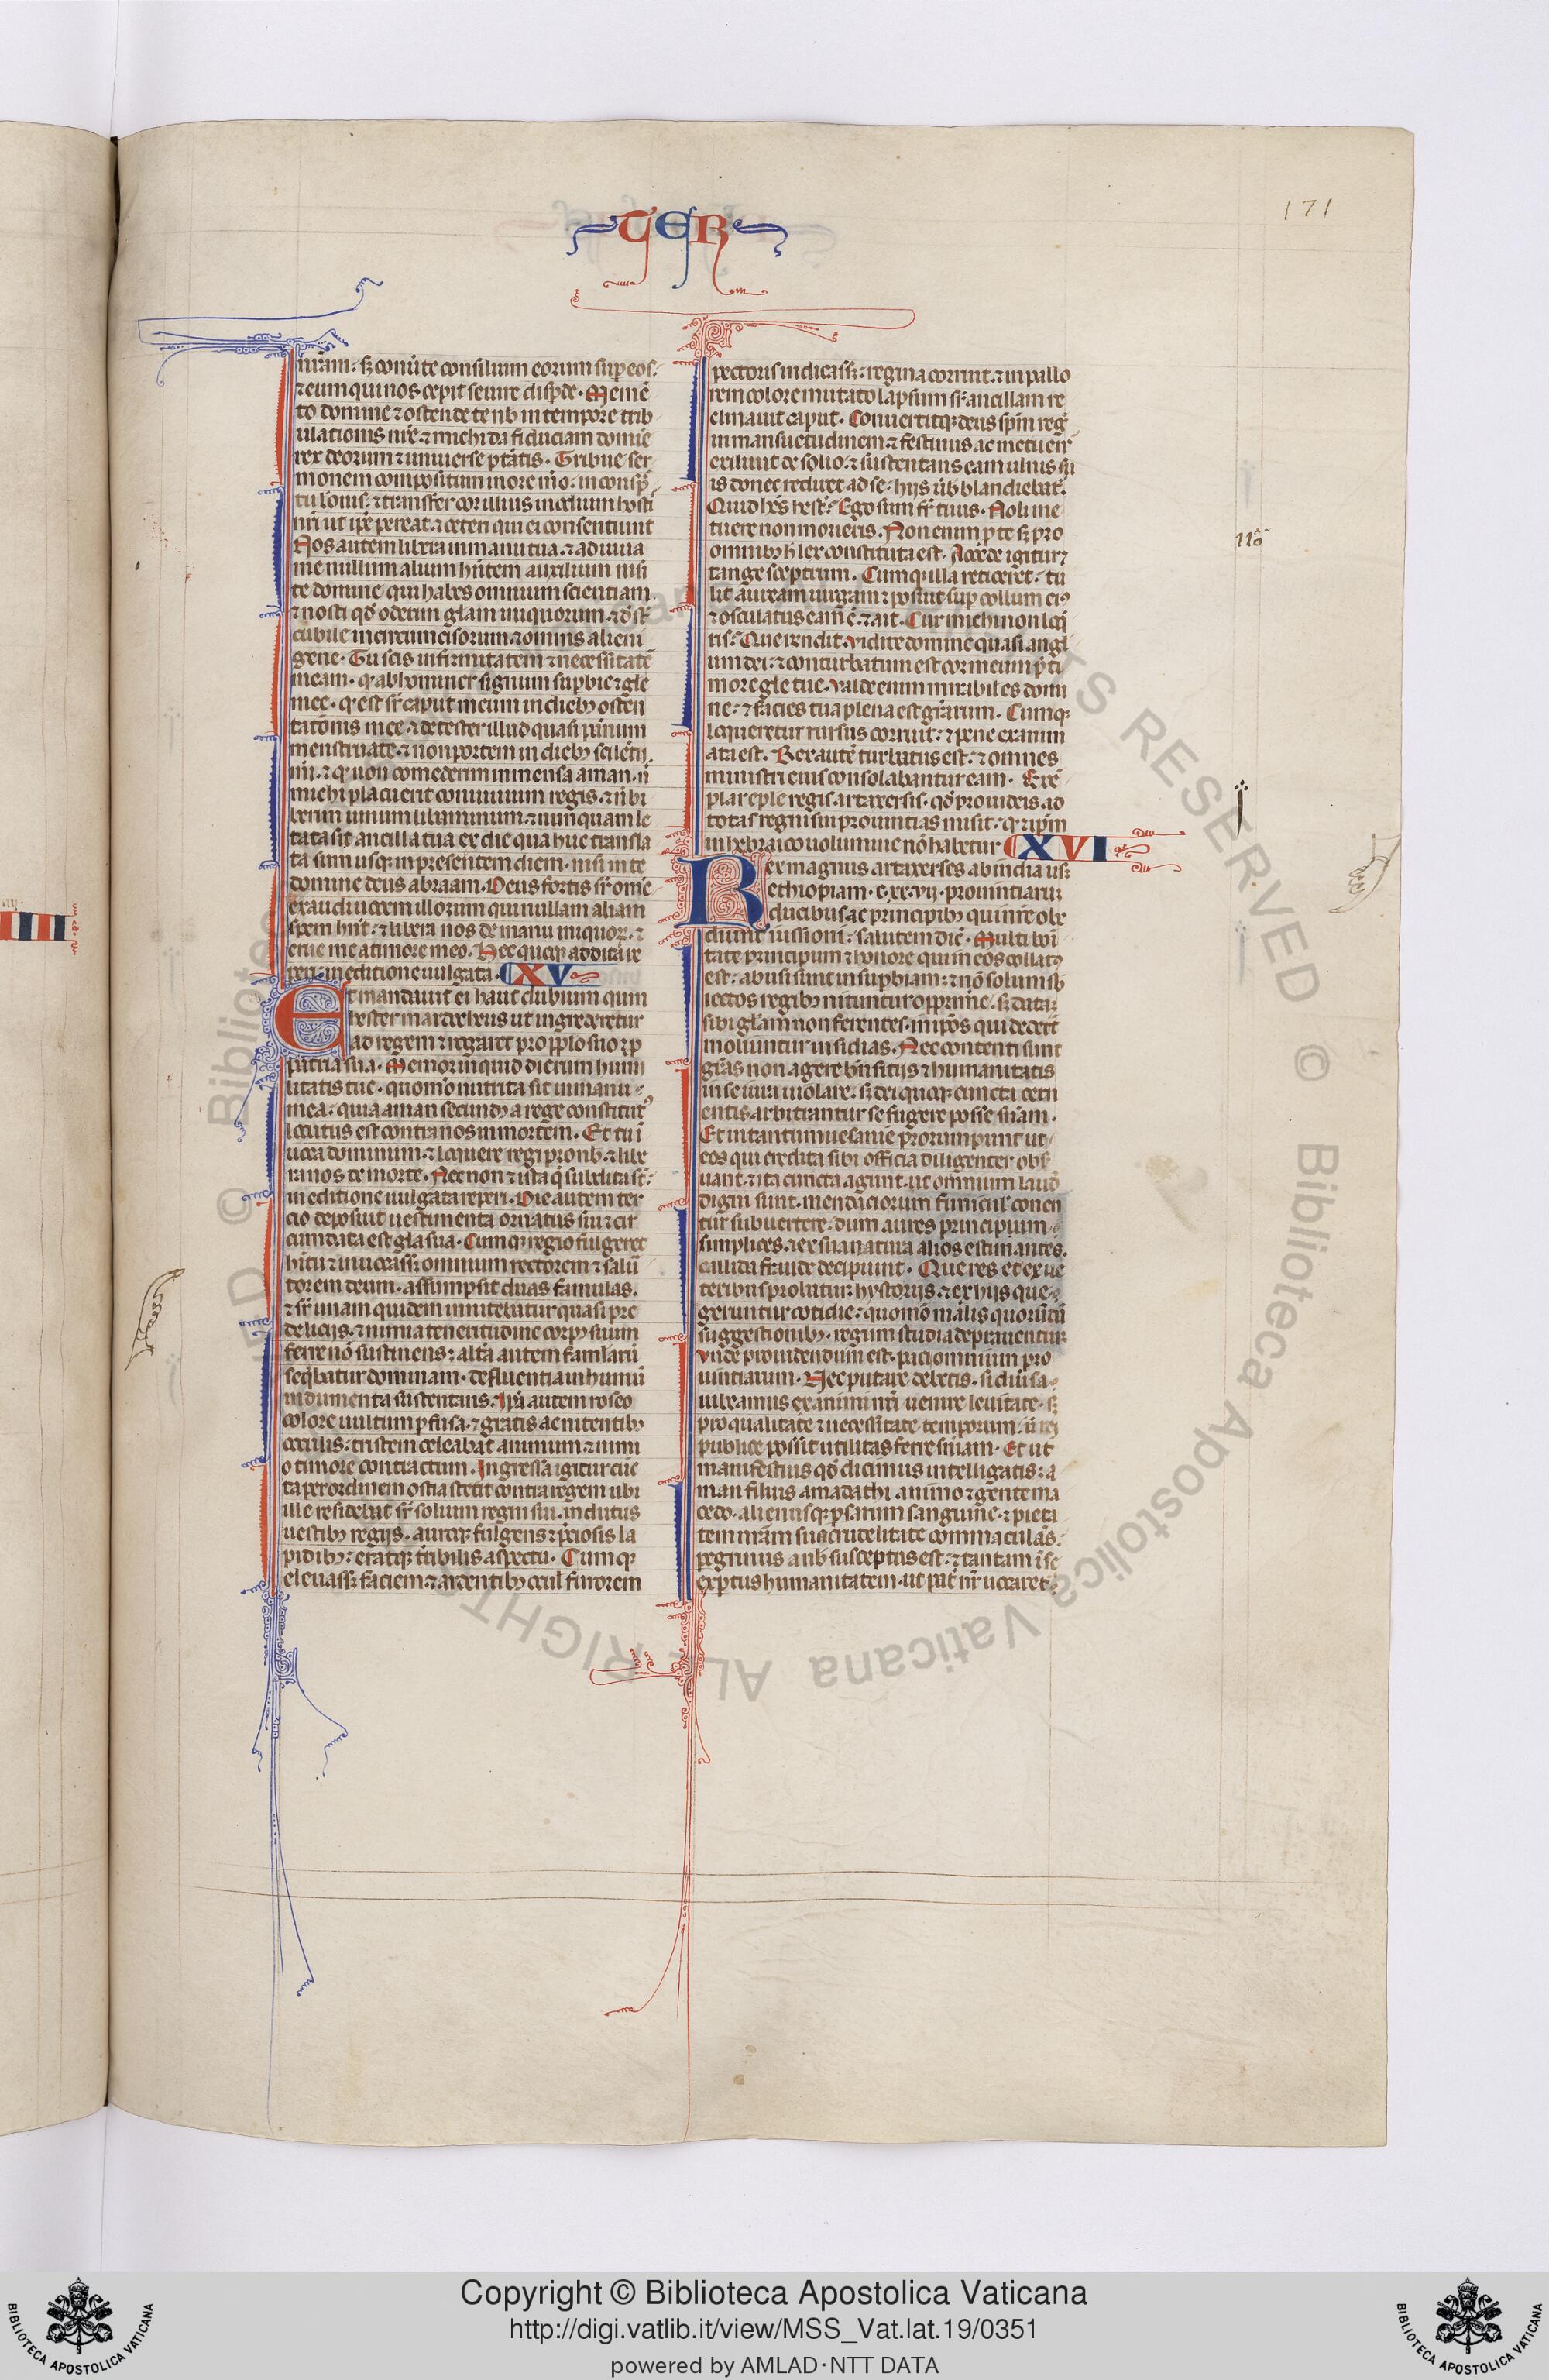 171
TER
niam· sʒ conũte consilium eorum sup̱ eos·
⁊ eum qui nos cepit seuire disp̱de· Memẽ
to domine ⁊ ostende te nob̃ in tempore trib
ulationis nr̃e· ⁊ michi da fiduciam domĩe
rex deorum ⁊ uniuerse ptãtis· Tribue ser
monem compositum in ore m̃o· in consp̃
tu leonis· ⁊ transfer cor illius in odium hosti
nr̃i ut ip̃e pereat· ⁊ ceteri qui ei consentiunt
Nos autem libera in manu tua· ⁊ adiuua
me nullum alium hñtem auxilium nisi
te domine qui habes omnium scientiam·
⁊ nosti qđ oderim gl̃am iniquorum· ⁊ đst̃
cubile incircumcisorum· ⁊ omnis alieni
gene· Tu scis infirmitatem ⁊ necessitatẽ
meam· q· abhominer signum sup̱bie ⁊ gl̃e
mee· q· est sr̃ caput meum in dieb; osten
tationis mee· ⁊ detester illud quasi pannum
menstruate· ⁊ non portem in dieb; silẽtij
m̃i· ⁊ q· non comederim in mensa aman· ñ
michi placuerit conuiuium regis· ⁊ ñ bi
berim uinum libaminum· ⁊ nunquam le
tata sit ancilla tua ex die qua huc transla
ta sum usq; in presentem diem· nisi in te
domine deus abraam· Deus fortis sr̃ om̃e
exaudi uocem illorum qui nullam aliam
spem hñt· ⁊ libera nos de manu iniquoꝝ· ⁊
erue me a timore meo· Hec quoq; addita re
peri· in editione uulgata· XV
Et mandauit ei haut dubium quin
hester mardocheus ut ingrederetur
ad regem ⁊ rogaret pro pp̃lo suo ⁊ p̱
patria sua· Memor inquid dierum humi
litatis tue· quom̃o nutrita sit in manu
mea· quia aman secund; a rege constitut᷒
locutus est contra nos in mortem· Et tu ĩ
uoca dominum· ⁊ loquere regi pro nob̃· ⁊ libe
ra nos de morte· Nec non ⁊ ista q̃ subdita st̃·
in editione uulgata reperi· Die autem ter
cio deposuit uestimenta ornatus sui· ⁊ cir
cumdata est gl̃a sua· Cumq; regio fulgeret
hĩtu ⁊ inuocassʒ omnium rectorem ⁊ saluã
torem deum· assumpsit duas famulas·
⁊ sr̃ unam quidem innitebatur quasi pre
delicijs· ⁊ nimia teneritudine corp᷒ suum
ferre nõ sustinens· alt̃a autem famlarũ
seq̃batur dominam· defluentia in humũ
indumenta sustentans· Ip̃a autem roseo
colore uultum p̱fusa· ⁊ gratis ac nitentib;
oculis· tristem celabat animum ⁊ nimi
o timore contractum· Ingressa igitur cũc
ta per ordinem ostia stetit contra regem ubi
ille residebat sr̃ solium regni sui· indutus
uestib; regijs· auroq; fulgens ⁊ p̃ciosis la
pidib;· eratq; t̃ribilis aspectu· Cumq;
eleuassʒ faciem· ⁊ ardentib; ocul̃ furorem
pectoris indicassʒ· regina corruit· ⁊ in pallo
rem colore mutato lapsum sr̃ ancillam re
clinauit caput· Conuertitq; deus sp̃m reg̃
in mansuetudinem ⁊ festinus ac metuens
exiliuit de solio· ⁊ sustentans eam ulnis su
is donec rediret ad se· hijs ũb blandiebat̃·
Quid hẽs hest̃· Ego sum fr̃ tuus· Noli me
tuere non morieris· Non enim p̱ te sʒ pro
omnib; h̃ lex constituta est· Accede igitur ⁊
tange sceptrum· Cumq; illa reticeret· tu
lit auream uirgam ⁊ posuit sup̱ collum ei᷒
⁊ osculatus eam ẽ· ⁊ ait· Cur michi non loq̃
ris· Que rendit· Vidi te domine quasi angl̃
um dei· ⁊ conturbatum est cor meum p̃ ti
more gl̃e tue· Valde enim mirabilis es domi
ne· ⁊ facies tua plena est gr̃arum· Cumq;
loqueretur rursus corruit· ⁊ pene exanim
ata est· Rex autẽ turbatus est· ⁊ omnes
ministri eius consolabantur eam· Exẽ
plar ep̃le regis artaxersis· qđ pro iudeis ad
totas regni sui prouintias misit· q· ⁊ ip̃m
in hebraico uolumine nõ habetur XVI
Rex magnus artaxerses ab india us;
ethiopiam· c·xx·vij· prouintiarũ
ducibus ac principib; qui nr̃e obe
diunt iussioni· salutem dic̃· Multi boi
tate principum ⁊ honore qui in eos collat᷒
est· abusi sunt in sup̱biam· ⁊ nõ solum sb̃
iectos regib; nituntur opprim̃e· sʒ data
sibi gl̃am non ferentes· in ip̃os qui dederũt
moliuntur insidias· Nec contenti sunt
gr̃as non agere bñfitijs ⁊ humanitatis
in se iura uiolare· sʒ dei quoq; cuncta cern
entis arbitrantur se fugere posse snĩam·
Et in tantum uesanie prorumpunt ut
eos qui credita sibi officia diligenter obs̃
uant· ⁊ ita cuncta agunt· ut omnium laud̃
digni sunt· mendaciorum funicul̃ conen
tur subuertere· dum aures principum
simplices· ⁊ ex sua natura alios estimantes·
callida fraude decipiunt· Que res et ex ue
teribus probatur hystorijs· ⁊ ex hijs que
geruntur cotidie· quomõ malis quorũdã
suggestionib;· regum studia deprauentur
Vnde prouidendum est· paci omnium pro
uintiarum· Nec putare debetis· si diũsa
iubeamus ex animi nr̃i uenire leuitate· sʒ
pro qualitate ⁊ necessitate temporum· ũ rei
publice possit utilitas ferre snĩam· Et ut
manifestius qđ dicimus intelligatis· a
man filius amadathi· animo ⁊ gente ma
cedo· alienusq; p̱sarum sanguine· ⁊ pieta
tem nr̃am sua crudelitate commaculãs·
pegrinus a nob̃ susceptus est· ⁊ tantam ĩ se
exp̱tus humanitatem· ut pat̃ nr̃ uocaret̃·
Copyright © Biblioteca Apostolica Vaticana
http://digi.vatlib.it/view/MSS_Vat.lat.19/0351
powered by AMLAD·NTT DATA
BIBLIOTECA APOSTOLICA VATICANA
BIBLIOTECA APOSTOLICA VATICANA